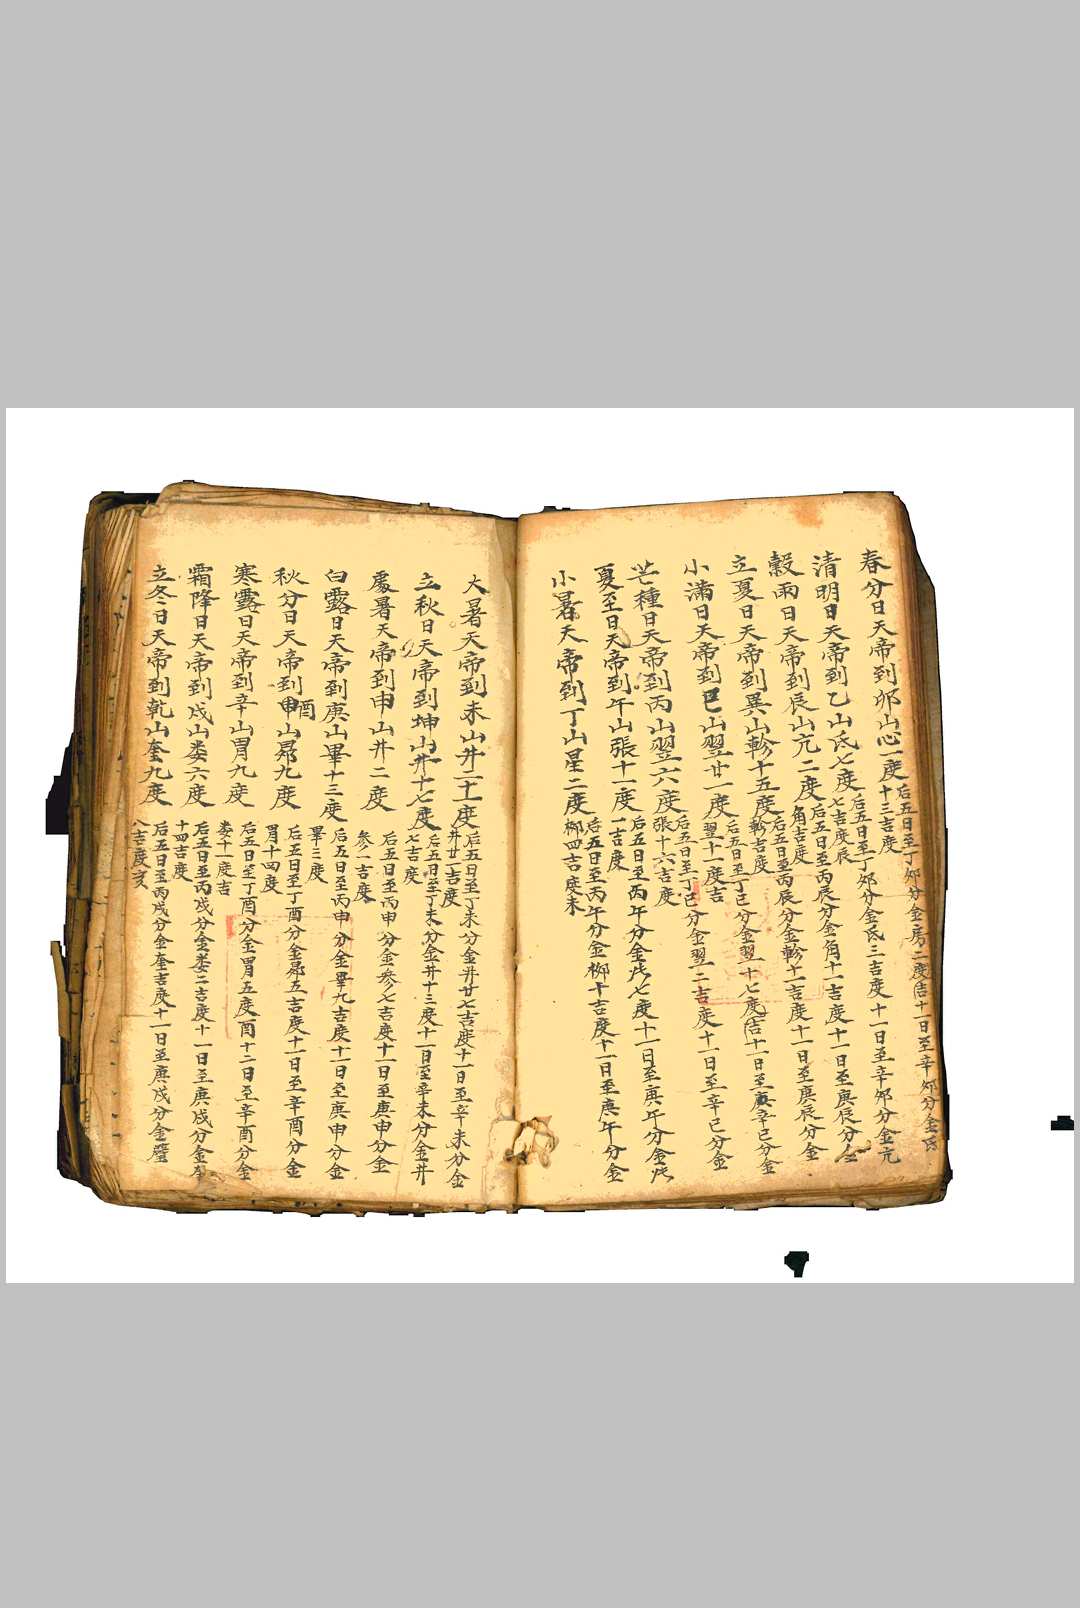 春分日天帝到卯山心一度
后五日至丁夘分金房二度吉十一日至辛夘分金氐
十三吉度
清明日天帝到乙山氐七度
后五日至丁夘分金氐三吉度十一日至辛夘分金亢
七吉度辰
穀雨日天帝到辰山亢二度
后五日至丙辰分金角十一吉度十一日至庚辰分金
角吉度
立夏日天帝到巽山軫十五度
后五日至丙辰分金軫十一吉度十一日至庚辰分金
軫吉度
小滿日天帝到巳山翌廿一度
后五日至丁巳分金翌十七度吉十一日至庚辛巳分金
翌十一度吉
芒種日天帝到丙山翌六度
后五日至丁巳分金翌二吉度十一日至辛巳分金
張十六吉度
夏至日天帝到午山張十一度
后五日至丙午分金七度十一日至庚午分金
一吉度
小暑天帝到丁山星二度
后五日至丙午分金柳十吉度十一日至庚午分金
柳四吉度未
大暑天帝到未山井二十度
后五日至丁未分金井廿七吉度十一日至辛未分金
井廿一吉度
立秋日天帝到坤山井十七度
后五日至丁未分金井十三度十一日至辛未分金井
七吉度
處暑天帝到申山井二度
后五日至丙申分金參七吉度十一日至庚申分金
參一吉度
白露日天帝到庚山畢十三度
后五日至丙申分金畢九吉度十一日至庚申分金
畢三度
秋分日天帝到申酉山昴九度
后五日至丁酉分金昴五吉度十一日至辛酉分金
胃十四度
寒露日天帝到辛山胃九度
后五日至丁酉分金胃五度酉十二日至辛酉分金
婁十一度吉
霜降日天帝到戍山婁六度
后五日至丙戍分金婁二吉度十一日至庚戍分金奎
十四吉度
立冬日天帝到乾山奎九度
后五日至丙戍分金奎吉度十一日至庚戍分金壁
八吉度亥